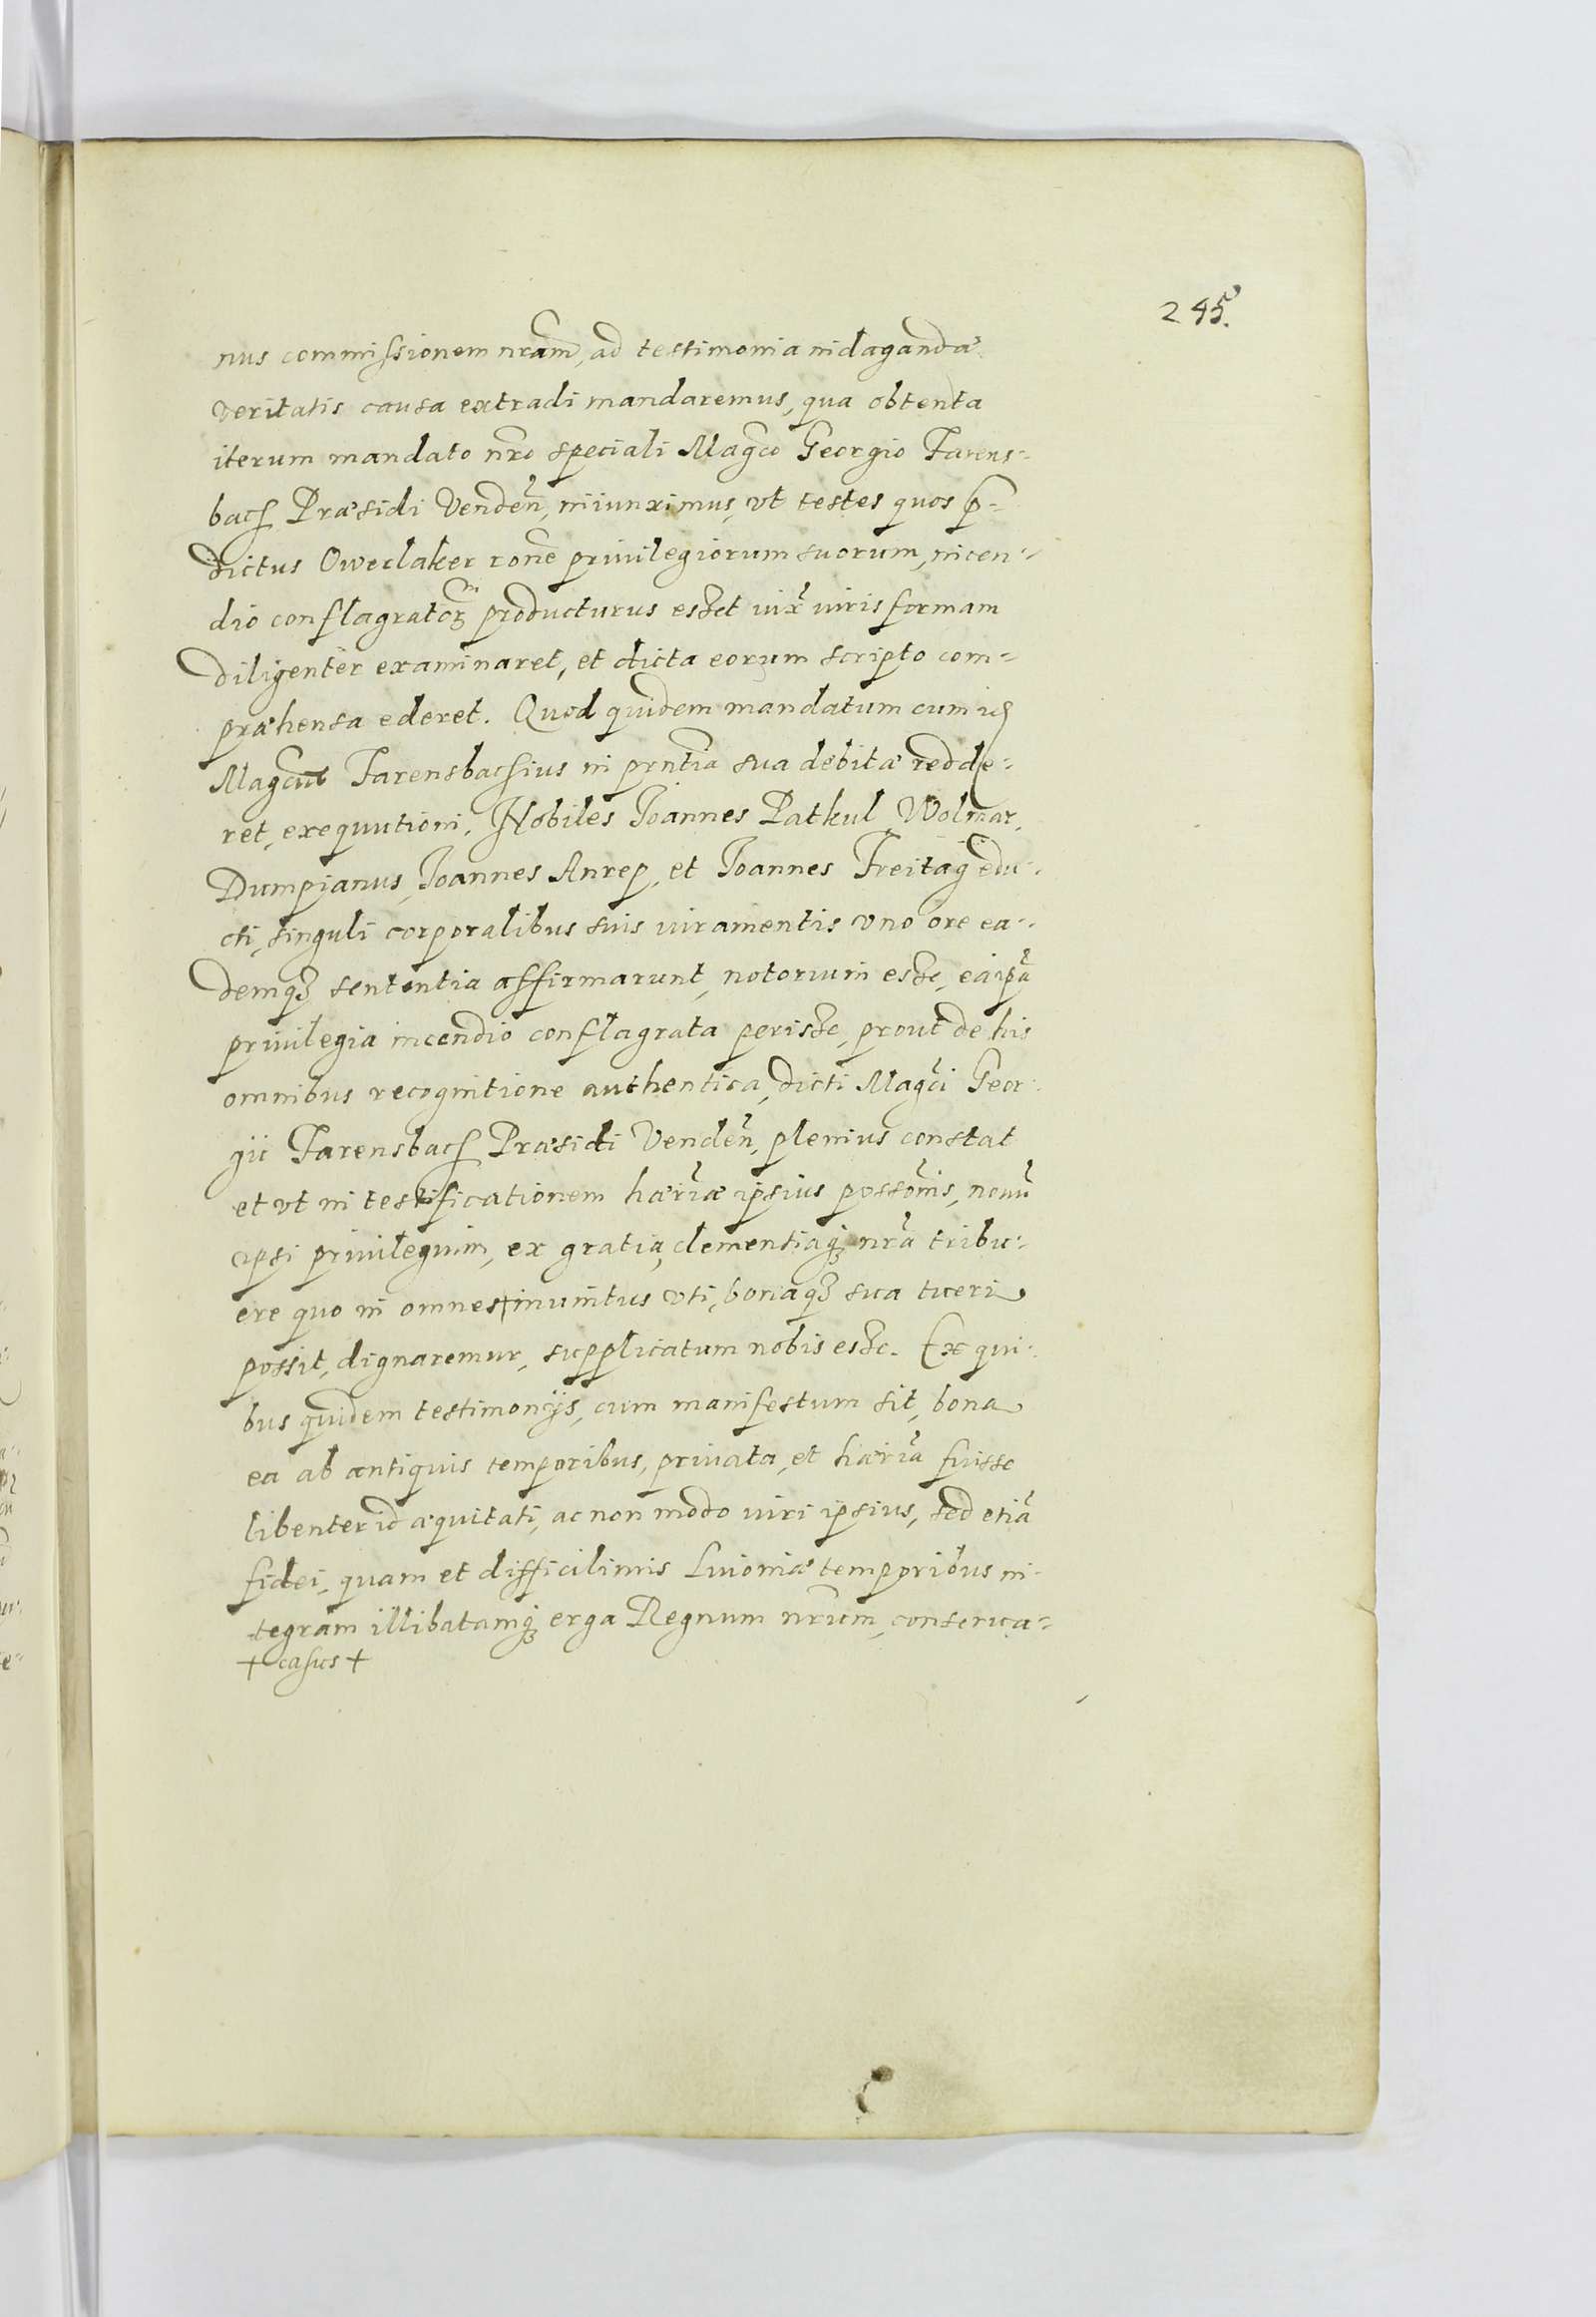 245.
nus commissionem nram, ad testimonia indagandæ
veritatis causa extradi mandaremus, qua obtenta
iterum mandato nro speciali Magco Georgio Farens-
bach Præsidi Venden, iniunximus, vt testes quos p-
dictus Owerlaker rone priuilegiorum suorum, incen-
dio conflagratorum producturus esset iux iuris formam
diligenter examinaret, et dicta eorum scripto com-
præhensa ederet. Quod quidem mandatum cum id
Magcus Farensbachius in prntia sua debitæ redde-
ret, exequutioni, Nobiles Joannes Patkul Wolmar,
Dumpianus, Joannes Anrep, et Joannes Freitag edu-
cti, singuli corporalibus suis iuramentis vno ore ea-
demq sententia affirmarunt, notorium esse, ea ipa
priuilegia incendio conflagrata perisse, prout de his
omnibus recognitione authentica, dicti Magci Geor-
gii Farensbach Præsidi Venden, plenius constat
et vt in testificationem hæriæ ipsius possonis, nouu
ipsi priuilegium, ex gratia, clementiaq nra tribu-
ere quo in omnes + inuintus vti, bonaq sua tueri
possit, dignaremur, supplicatum nobis esse. Ex qui-
bus quidem testimonijs, cum manifestum sit, bona
ea ab antiquis temporibus, priuata, et hæria fuisse
libenter id æquitati, ac non modo iuri ipsius, sed etia
fidei, quam et difficilimis Liuoniæ temporibus in-
tegram illibatamq erga Regnum nrum, conserua-
+ casus +